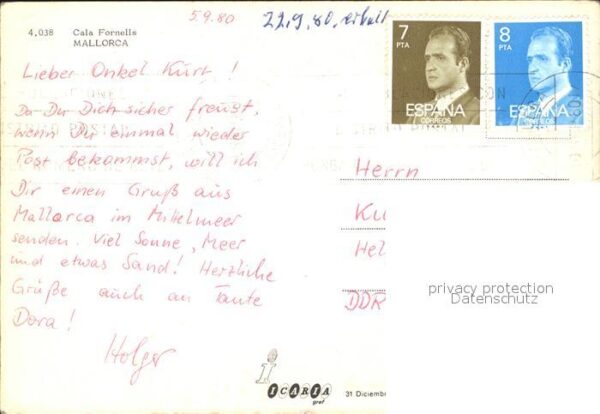 5.9.80
22.9.80, erhalt
4.038 Cala Fornells
MALLORCA
7
PTA
ESPAÑA
CORREOS
8
PTA
ESPAÑA
CORREOS
Lieber Onkel Kurt!
Da Du Dich sicher freust,
wenn Du einmal wieder
Post bekommst, will ich
Dir einen Gruß aus
Mallorca im Mittelmeer
senden. Viel Sonne, Meer
und etwas Sand! Herzliche
Grüße auch an Tante
Dora!
Holger
Herrn
Ku
Hel
DDR
privacy protection
Datenschutz
ICARIA
graf
31 Diciemb